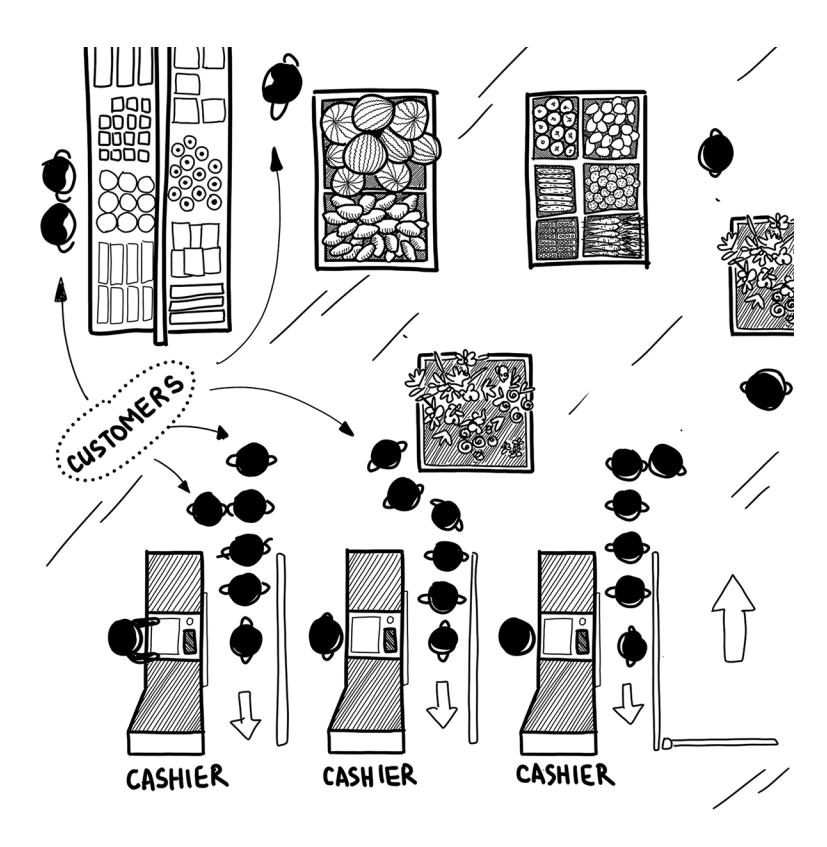 CUSTOMERS
CASHIER
CASHIER
CASHIER